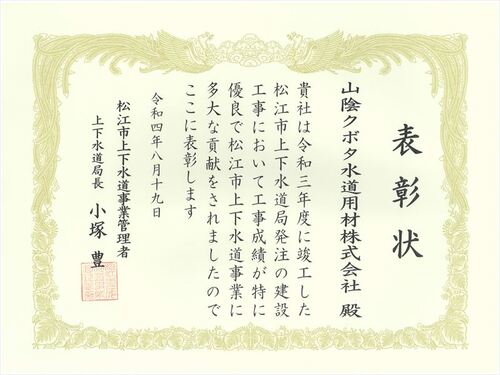 表彰状
山陰クボタ水道用材株式会社 殿
貴社は令和三年度に竣工した
松江市上下水道局発注の建設
工事において工事成績が特に
優良で松江市上下水道事業に
多大な貢献をされましたので
ここに表彰します
令和四年八月十九日
松江市上下水道事業管理者
上下水道局長 小塚 豊